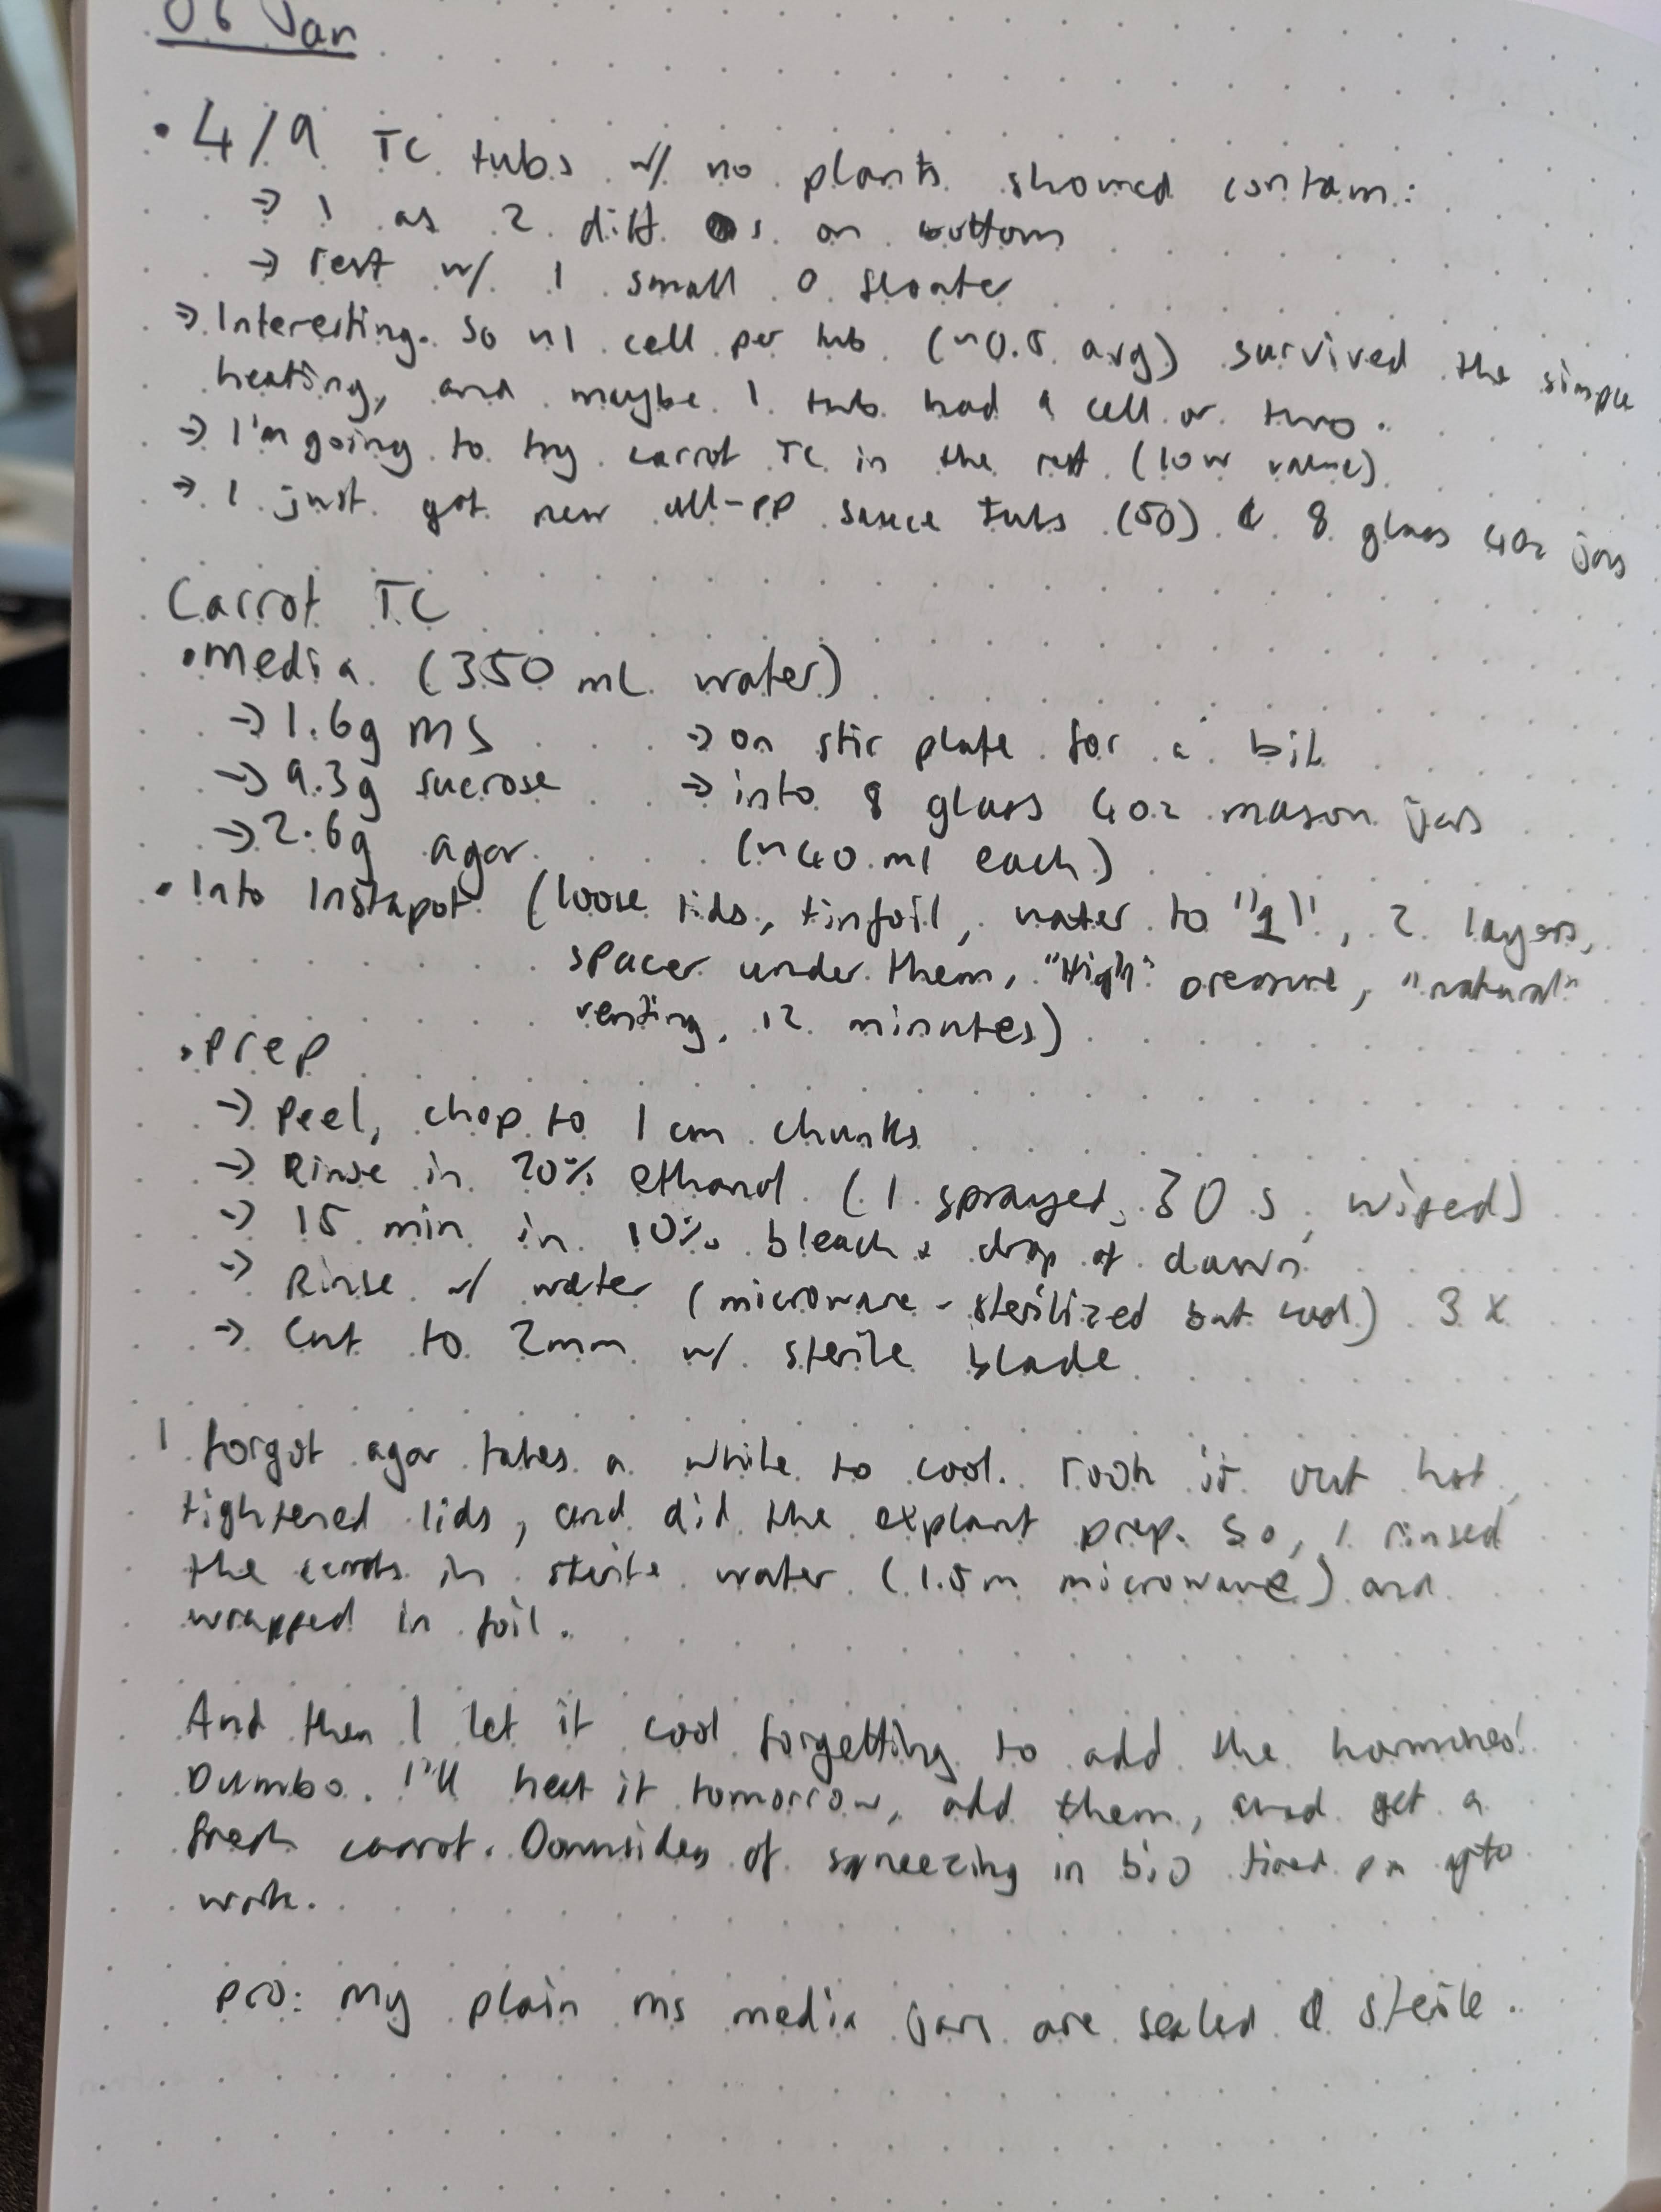 06 Jan
• 4/9 TC tubs w/ no plants showed contam:
→ 1 as 2 diff. Os on bottom
→ rest w/ 1 small O floater
→ Interesting. So ~1 cell per tub (~0.5 avg) survived the simple
heating, and maybe 1 tub had a cell or two.
→ I'm going to try carrot TC in the rest (low value)
→ I just got new all-PP sauce tubs (50) & 8 glass 4oz jars
Carrot TC
• Media (350 mL water)
→ 1.6g MS → on stir plate for a bit
→ 9.3g sucrose → into 8 glass 4oz mason jars
→ 2.6g agar (~40 ml each)
• Into Instapot (loose lids, tinfoil, water to "1", 2 layers,
spacer under them, "High" pressure, "natural"
venting, 12 minutes)
• Prep
→ Peel, chop to 1 cm chunks
→ Rinse in 70% ethanol (I sprayed, 30 s, wiped)
→ 15 min in 10% bleach + drop of dawn
→ Rinse w/ water (microwave-sterilized but cool) 3x
→ Cut to 2mm w/ sterile blade
I forgot agar takes a while to cool. Took it out hot,
tightered lids, and did the explant prep. So, I rinsed
the carrots in sterile water (1.5m microwave) and
wrapped in foil.
And then I let it cool forgetting to add the hormones!
Dumbo. I'll heat it tomorrow, add them, and get a
fresh carrot. Downsides of squeezing in bio tired after
work.
Pro: My plain MS media jars are sealed & sterile.